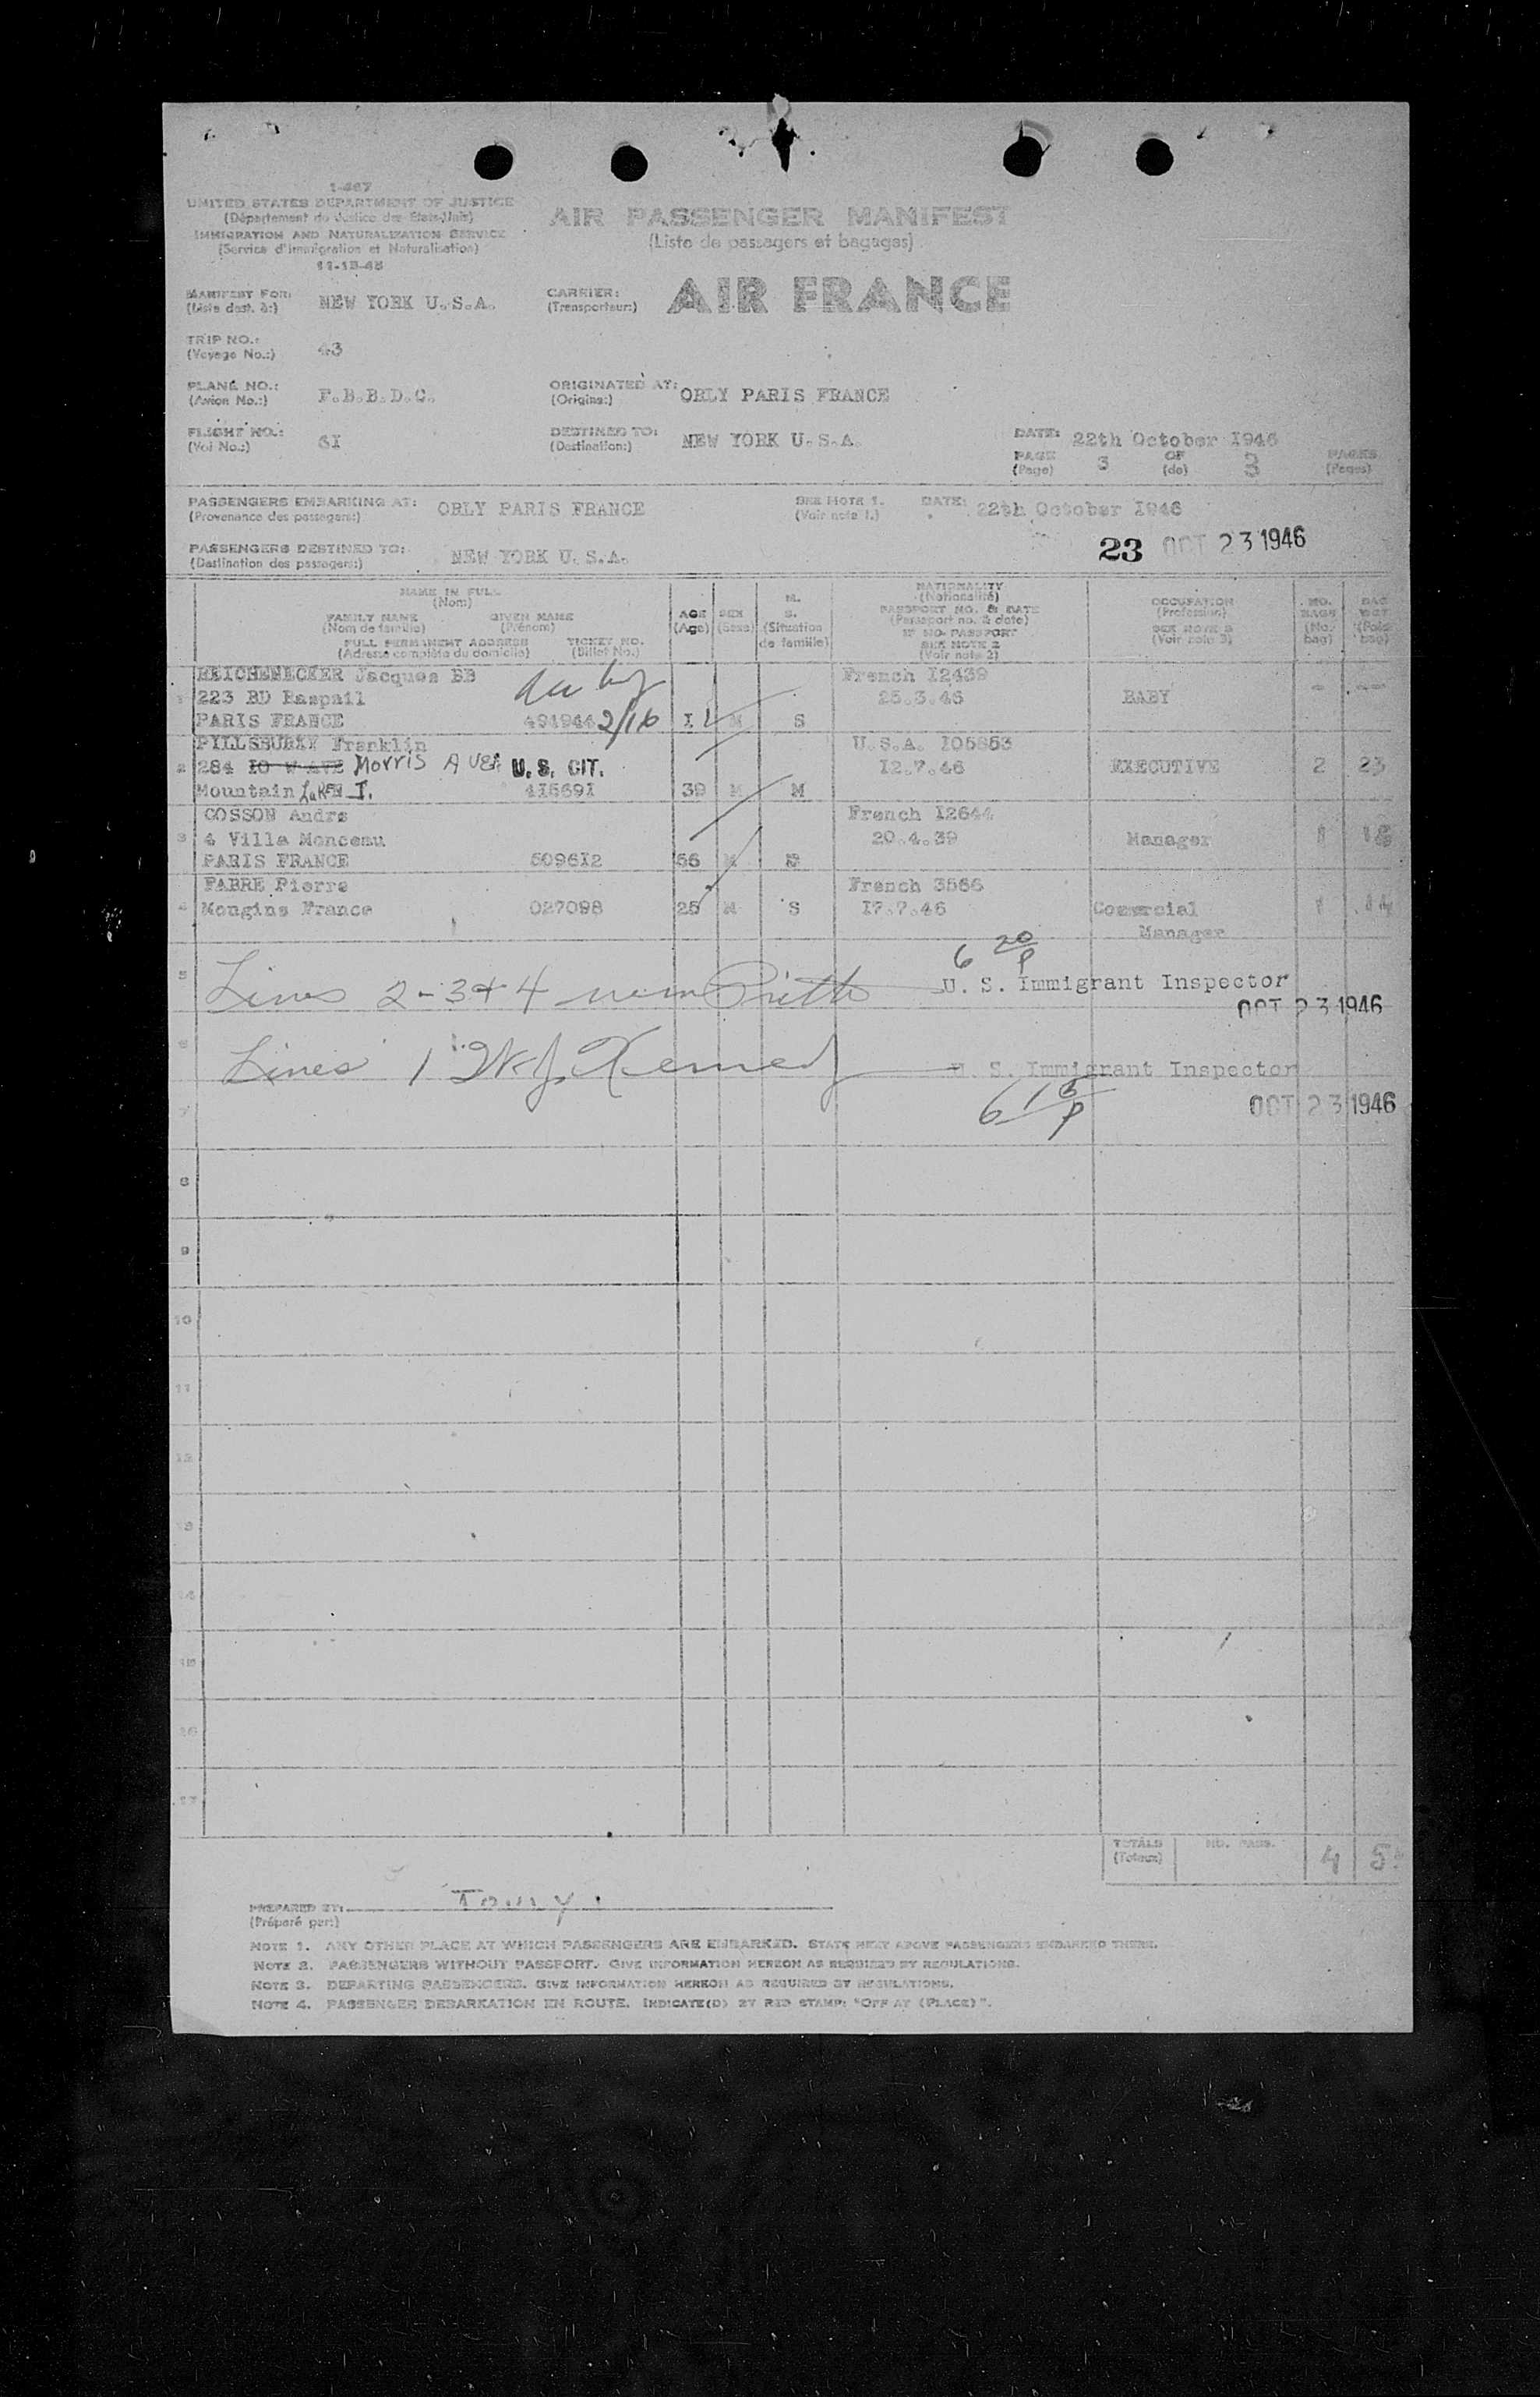 1-467
UNITED STATES DEPARTMENT OF JUSTICE
(Département de Justice des Etats-Unis)
IMMIGRATION AND NATURALIZATION SERVICE
(Service d'Immigration et Naturalisation)
11-15-45
AIR PASSENGER MANIFEST
(Liste de passagers et bagages)
MANIFEST FOR: NEW YORK U.S.A.
(Liste dest. à:)
CARRIER: AIR FRANCE
(Transporteur:)
TRIP NO.: 43
(Voyage No.:)
PLANE NO.: F.B.B.D.C.
(Avion No.:)
ORIGINATED AT: ORLY PARIS FRANCE
(Origine:)
FLIGHT NO.: 6I
(Vol No.:)
DESTINED TO: NEW YORK U.S.A.
(Destination:)
DATE: 22th October I946
PAGE 3 OF 3 PAGES
(Page) (de) (Pages)
PASSENGERS EMBARKING AT: ORLY PARIS FRANCE
(Provenance des passagers:)
SEE NOTE 1. DATE: 22th October I946
(Voir note 1.)
PASSENGERS DESTINED TO: NEW YORK U.S.A.
(Destination des passagers:)
23 OCT 23 1946
NAME IN FULL
(Nom)
FAMILY NAME GIVEN NAME
(Nom de famille) (Prénom)
FULL PERMANENT ADDRESS TICKET NO.
(Adresse complète du domicile) (Billet No.)
AGE
(Age)
SEX
(Sexe)
M.
S.
(Situation
de famille)
NATIONALITY
(Nationalité)
PASSPORT NO. & DATE
(Passeport no. & date)
IF NO PASSPORT
SEE NOTE 2
(Voir note 2)
OCCUPATION
(Profession)
SEE NOTE 3
(Voir note 3)
NO.
BAGS
(No.
bag)
BAG
WGT
(Poids
bag)
1 REICHENECKER Jacques BB French I2439
223 BD Raspail 25.3.46 BABY - --
PARIS FRANCE 491944 2/16 I 1 M S
2 PILLSBURY Franklin U.S.A. I05853
284 IO W AVE Morris AVE U.S. CIT. I2.7.46 EXECUTIVE 2 23
Mountain LaKEN J. 4I569I 39 M M
3 COSSON Andre French I2644
4 Villa Monceau 20.4.39 Manager 1
PARIS FRANCE 5096I2 56 M
4 FABRE Pierre French 3566
Mougins France 027098 25 M S I7.7.46 Commercial 1 14
Manager
6 20 P
5 Lines 2-3+4 U. S. Immigrant Inspector
OCT 23 1946
6 Lines 1 U. S. Immigrant Inspector
6 15 P
7 OCT 23 1946
8
9
10
11
12
13
14
15
16
17
TOTALS NO. PASS. 4
(Totaux)
PREPARED BY:
(Préparé par:)
NOTE 1. ANY OTHER PLACE AT WHICH PASSENGERS ARE EMBARKED. STATE NEXT ABOVE PASSENGERS EMBARKED THERE.
NOTE 2. PASSENGERS WITHOUT PASSPORT. GIVE INFORMATION HEREON AS REQUIRED BY REGULATIONS.
NOTE 3. DEPARTING PASSENGERS. GIVE INFORMATION HEREON AS REQUIRED BY REGULATIONS.
NOTE 4. PASSENGER DEBARKATION EN ROUTE. INDICATE(D) BY RED STAMP: "OFF AT (PLACE)".